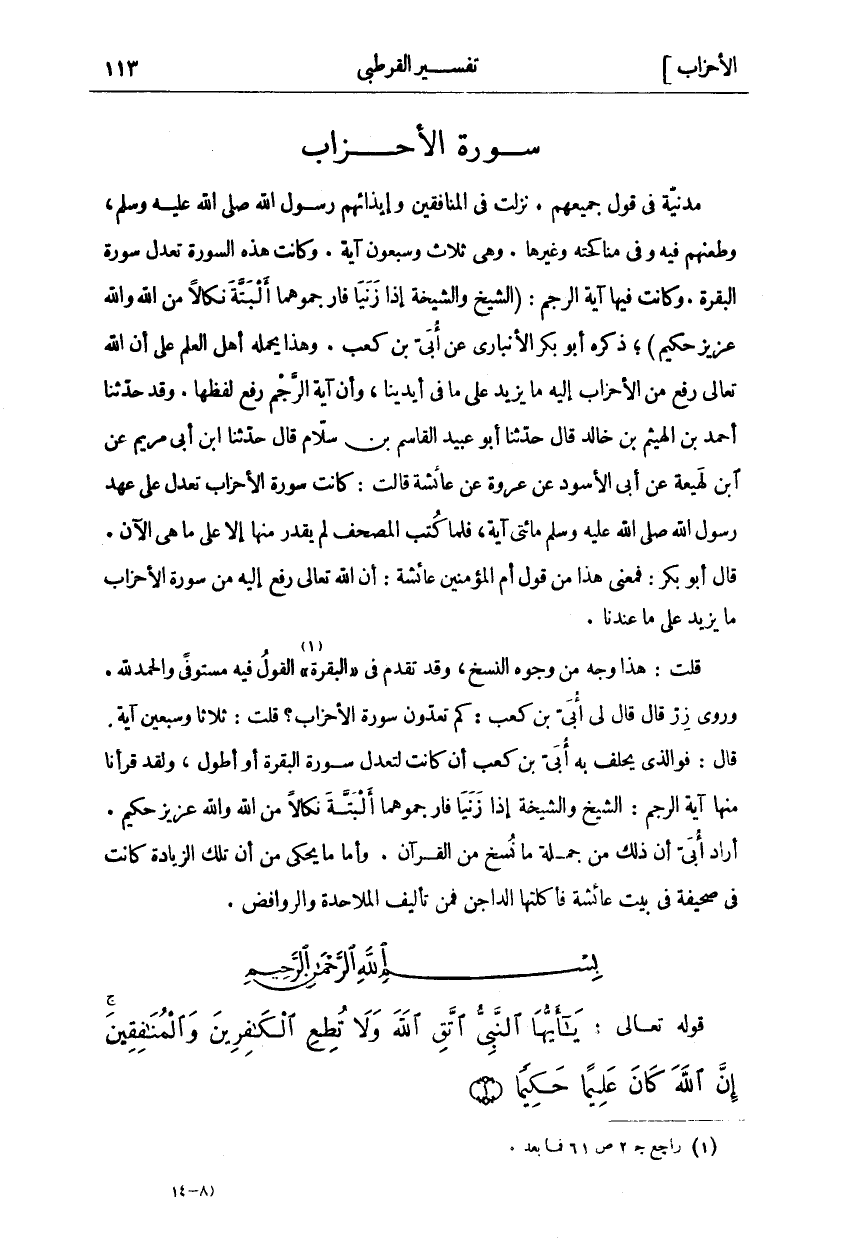 الأحزاب ] تفسير القرطبى ١١٣
سورة الأحزاب
مدنيّة فى قول جميعهم . نزلت فى المنافقين وإيذائهم رسول الله صلى الله عليه وسلم،
وطعنهم فيه وفى مناكحته وغيرها . وهى ثلاث وسبعون آية . وكانت هذه السورة تعدل سورة
البقرة . وكانت فيها آية الرجم : (الشيخ والشيخة إذا زَنَيَا فارجموهما أَلْبَتَّةَ نكالاً من الله والله
عزيز حكيم) ؛ ذكره أبو بكر الأنبارى عن أُبَىّ بن كعب . وهذا يحمله أهل العلم على أن الله
تعالى رفع من الأحزاب إليه ما يزيد على ما فى أيدينا ، وأن آية الرَّجْم رفع لفظها . وقد حدّثنا
أحمد بن الهيثم بن خالد قال حدّثنا أبو عبيد القاسم بن سلّام قال حدّثنا ابن أبى مريم عن
ٱبن لَهِيعة عن أبى الأسود عن عروة عن عائشة قالت : كانت سورة الأحزاب تعدل على عهد
رسول الله صلى الله عليه وسلم مائتى آية، فلما كُتب المصحف لم يقدر منها إلا على ما هى الآن .
قال أبو بكر : فمعنى هذا من قول أم المؤمنين عائشة : أن الله تعالى رفع إليه من سورة الأحزاب
ما يزيد على ما عندنا .
قلت : هذا وجه من وجوه النسخ، وقد تقدم فى «البقرة» (١) القولُ فيه مستوفًى والحمد لله .
وروى زِرّ قال قال لى أُبَىّ بن كعب : كم تعدّون سورة الأحزاب؟ قلت : ثلاثا وسبعين آية .
قال : فوالذى يحلف به أُبَىّ بن كعب أن كانت لتعدل سورة البقرة أو أطول ، ولقد قرأنا
منها آية الرجم : الشيخ والشيخة إذا زَنَيَا فارجموهما أَلْبَتَّةَ نكالاً من الله والله عزيز حكيم .
أراد أُبَىّ أن ذلك من جملة ما نُسخ من القرآن . وأما ما يحكى من أن تلك الزيادة كانت
فى صحيفة فى بيت عائشة فأكلتها الداجن فمن تأليف الملاحدة والروافض .
بِسْمِ ٱللَّهِ ٱلرَّحْمَٰنِ ٱلرَّحِيمِ
قوله تعالى : يَـٰٓأَيُّهَا ٱلنَّبِىُّ ٱتَّقِ ٱللَّهَ وَلَا تُطِعِ ٱلْكَـٰفِرِينَ وَٱلْمُنَـٰفِقِينَ ۚ
إِنَّ ٱللَّهَ كَانَ عَلِيمًا حَكِيمًا ١
(١) راجع جـ ٢ ص ٦١ فما بعد .
(٨-١٤